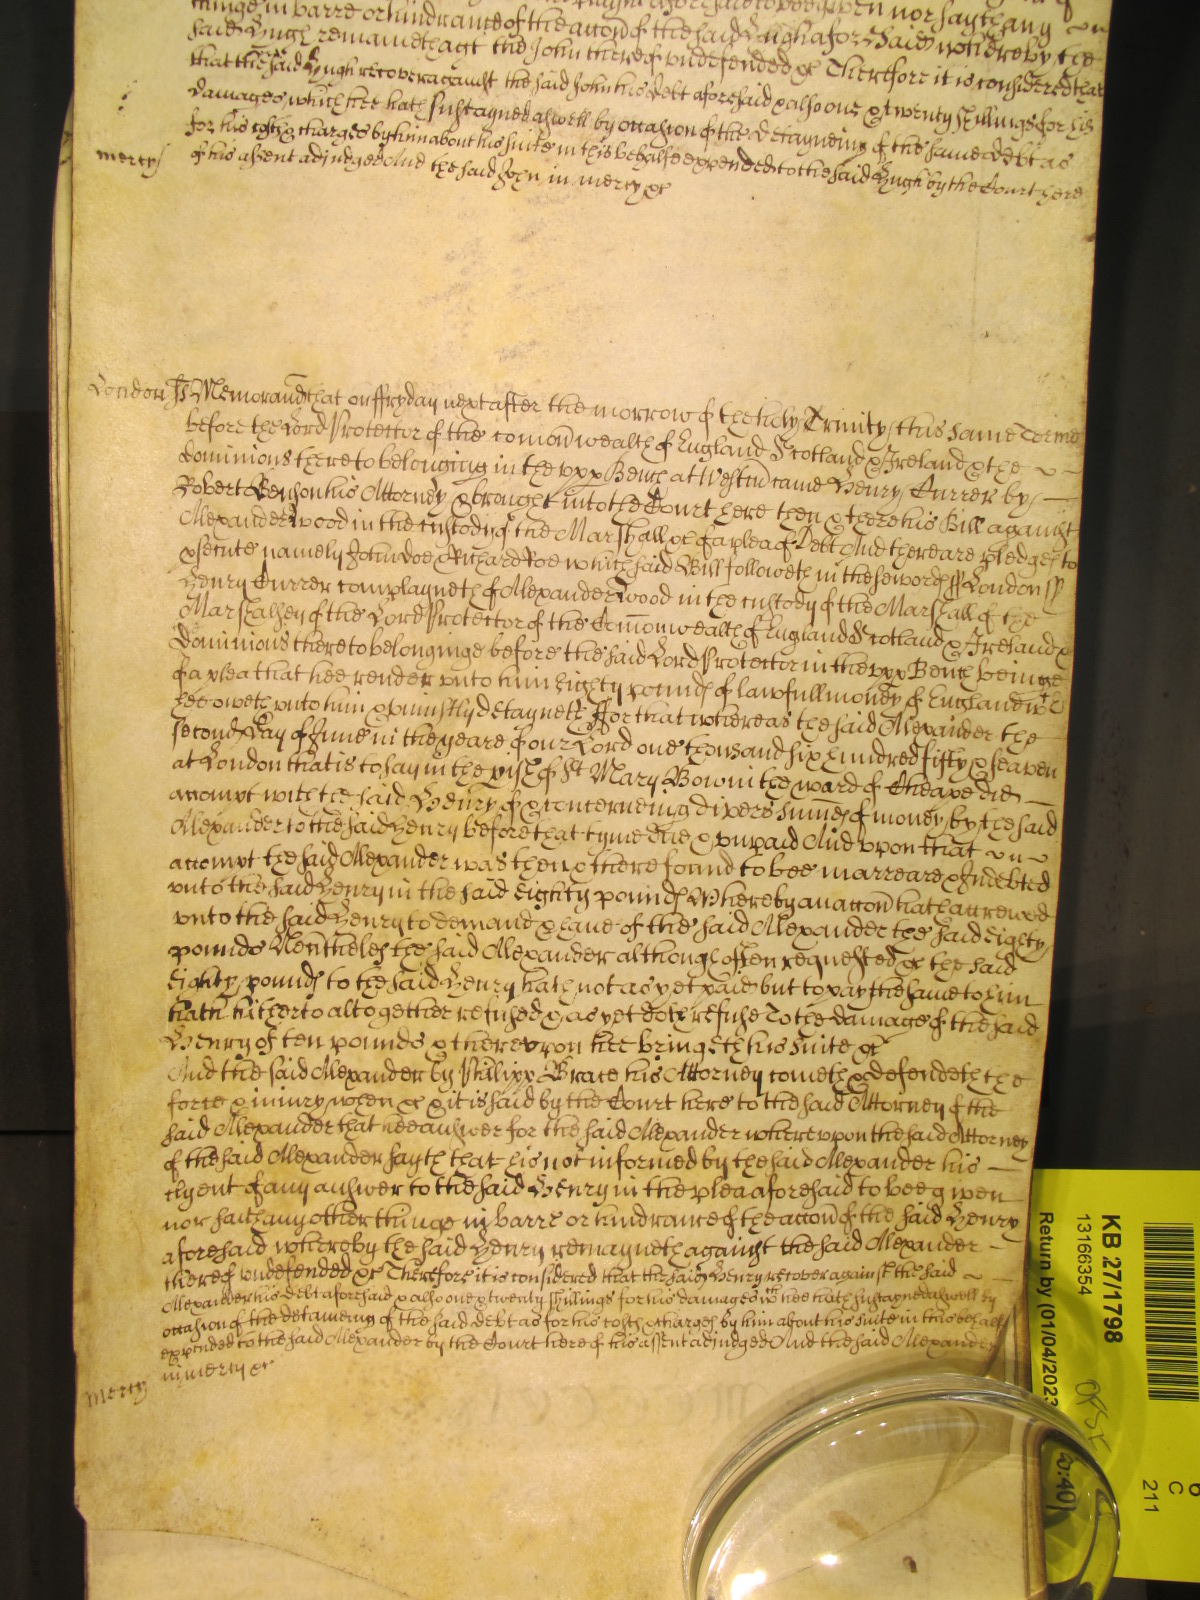 thinge in barre or hindrance of the accon of the said Hugh aforesaid whereby the
said Hugh remaineth agt the John thereof undefended &c Therefore it is considered that
that the said Hugh recover against the said John his debt aforesaid & alsoe one & twenty shillings for his
damages which hee hath sustayned aswell by occasion of the detayneing of the same debt as
for his costs & charges by him about his suite in this behalfe expended to the said Hugh by the Court here
mercy of his assent adjudged And the said John in mercy &c
London ss Memorand that on ffryday next after the morrow of the holy Trinity this same Terme
before the Lord Protector of the comon wealth of England Scotland & Ireland & the
dominions thereto belonging in the upp Bench at Westm came Henry Currer by
Robert Benson his Attorney & brought into the Court here then & there his Bill against
Alexander Wood in the custody of the Marshall &c of a plea of Debt And there are pledges to
psecute namely John Doe & Richard Roe which said Bill followeth in these words ss London ss
Henry Currer complayneth of Alexander Wood in the custody of the Marshall of the
Marshalsey of the Lord Protector of the Comonwealth of England Scotland & Ireland &
Dominions thereto belonginge before the said Lord Protector in the upp Bench beinge
of a plea that hee render unto him Eighty pounds of lawfull money of England wch
hee oweth unto him & uniustly detayneth ffor that whereas the said Alexander the
second day of June in the yeare of our Lord one thousand six hundred fifty & seaven
at London that is to say in the pish of St Mary Bow in the ward of Cheape did
accompt with the said Henry of & concerneing divers summes of money by the said
Alexander to the said Henry before that tyme due & unpaid And upon that
accompt the said Alexander was then & there found to bee in arreare & Indebted
unto the said Henry in the said Eighty pounds Whereby an accon hath accrewed
unto the said Henry to demand & have of the said Alexander the said Eighty
pounds Nevtheles the said Alexander although often requested &c the said
Eighty pounds to the said Henry hath not as yet paid but to pay the same to him
hath hitherto altogether refused & as yet doth refuse To the damage of the said
Henry of ten pounds & thereupon hee bringeth his suite &c
And the said Alexander by Phillipp Brace his Attorney cometh & defendeth the
force & iniury when &c & it is said by the Court here to the said Attorney of the
said Alexander that hee answer for the said Alexander whereupon the said Attorney
of the said Alexander sayth that hee is not informed by the said Alexander his
clyent of any answer to the said Henry in the plea aforesaid to bee given
nor saith any other thinge in barre or hindrance of the accon of the said Henry
aforesaid whereby the said Henry remayneth against the said Alexander
thereof undefended &c Therefore it is considered that the said Henry recover against the said
Alexander his debt aforesaid & alsoe one & twenty shillings for his damages wch hee hath sustayned aswell by
occasion of the detaineing of the said debt as for his costs & charges by him about his suite in this behalf
expended to the said Alexander by the Court here of his assent adjudged And the said Alexander
mercy in mercy &c
KB 27/1798
13166354
Return by (01/04/2023
C
211